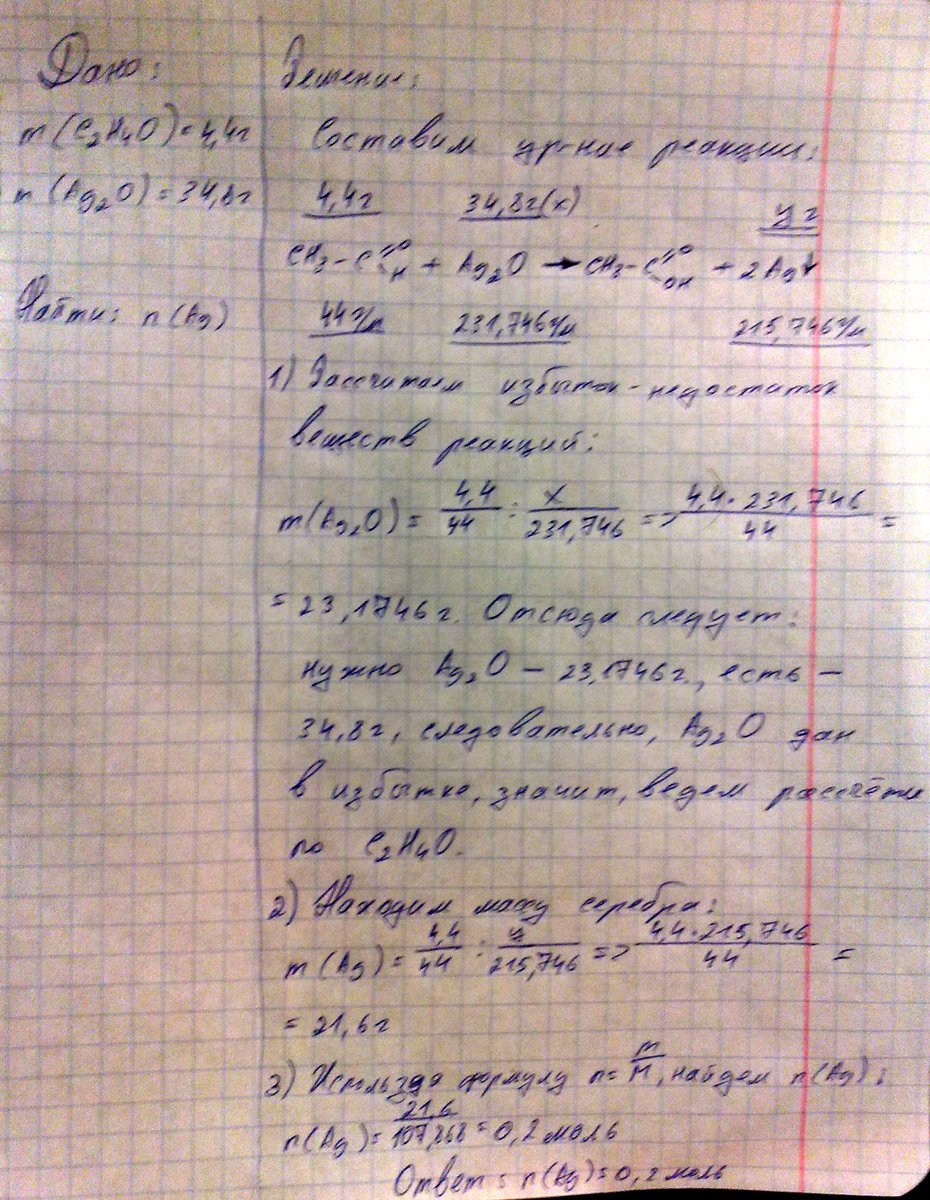 Дано: Решение:
m(C₂H₄O)=4,4г Составим ур-ние реакции:
m(Ag₂O)=34,8г 4,4г 34,8г(x) y г
CH₃-C=O H + Ag₂O → CH₃-C=O OH + 2Ag↓
Найти: n(Ag) 44г/м 231,746г/м 215,746г/м
1) Рассчитаем избыток-недостаток
веществ реакций:
m(Ag₂O) = 4,4/44 : x/231,746 => 4,4·231,746/44 =
= 23,1746г. Отсюда следует:
нужно Ag₂O – 23,1746г., есть –
34,8г, следовательно, Ag₂O дан
в избытке, значит, ведем рассчёты
по C₂H₄O.
2) Находим массу серебра:
m(Ag) = 4,4/44 : y/215,746 => 4,4·215,746/44 =
= 21,6г
3) формулу n=m/M, найдем n(Ag):
n(Ag)=21,6/107,868=0,2моль
Ответ: n(Ag)=0,2моль